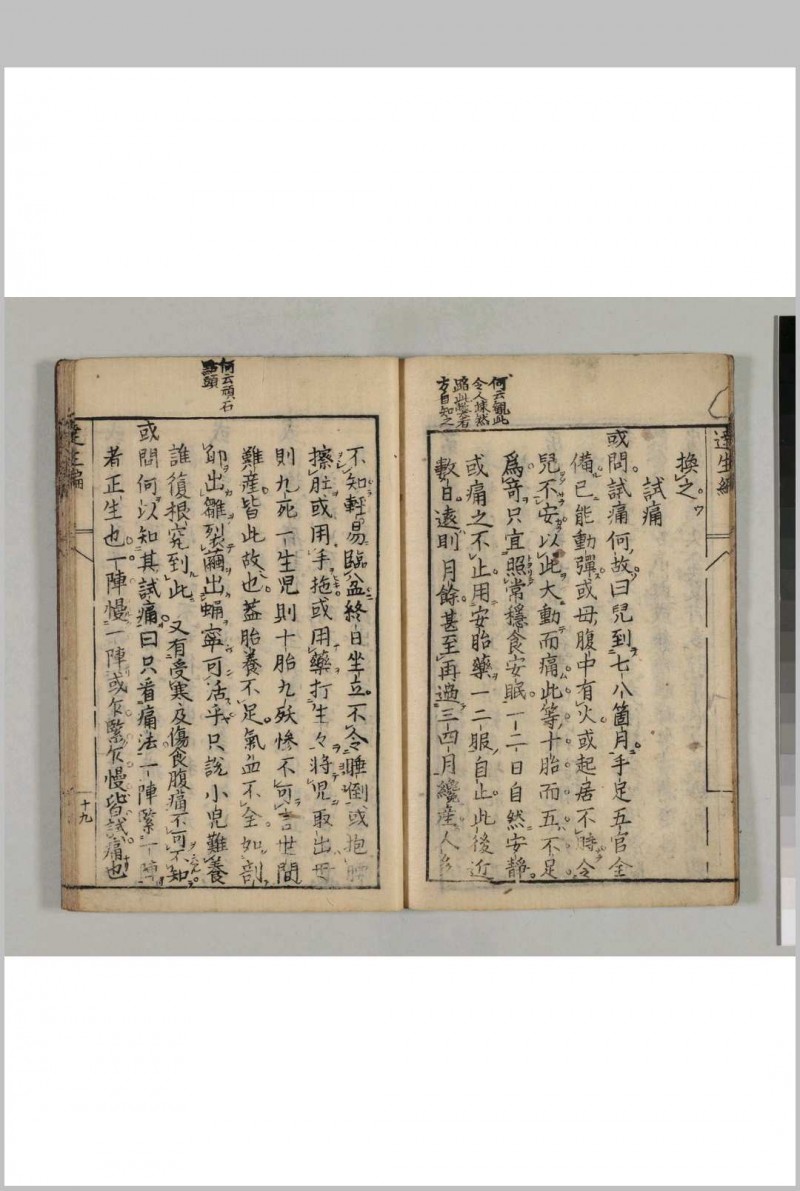 達生編
何云觀此
令人悚然
蹈此弊者
方自知之
換之
試痛
或問試痛何故曰兒到七八箇月手足五官全
備已能動彈或母腹中有火或起居不時令
兒不安以此大動而痛此等十胎而五不足
爲奇只宜照常穩食安眠一二日自然安靜
或痛之不止用安胎藥一二服自止此後近
數日遠則月餘甚至再過三四月纔産人多
何云頑石
點頭
不知輕易臨盆終日坐立不令睡倒或抱腰
擦肚或用手拖或用藥打生々將兒取出母
則九死一生兒則十胎九殀慘不可言世間
難産皆此故也蓋胎養不足氣血不全如剖
卵出雛裂繭出蛹寧可活乎只說小兒難養
誰復根究到此 又有受寒及傷食腹痛不可不知
或問何以知其試痛曰只看痛法一陣緊一陣
者正生也一陣慢一陣或乍緊乍慢皆試痛也
達生編
十九